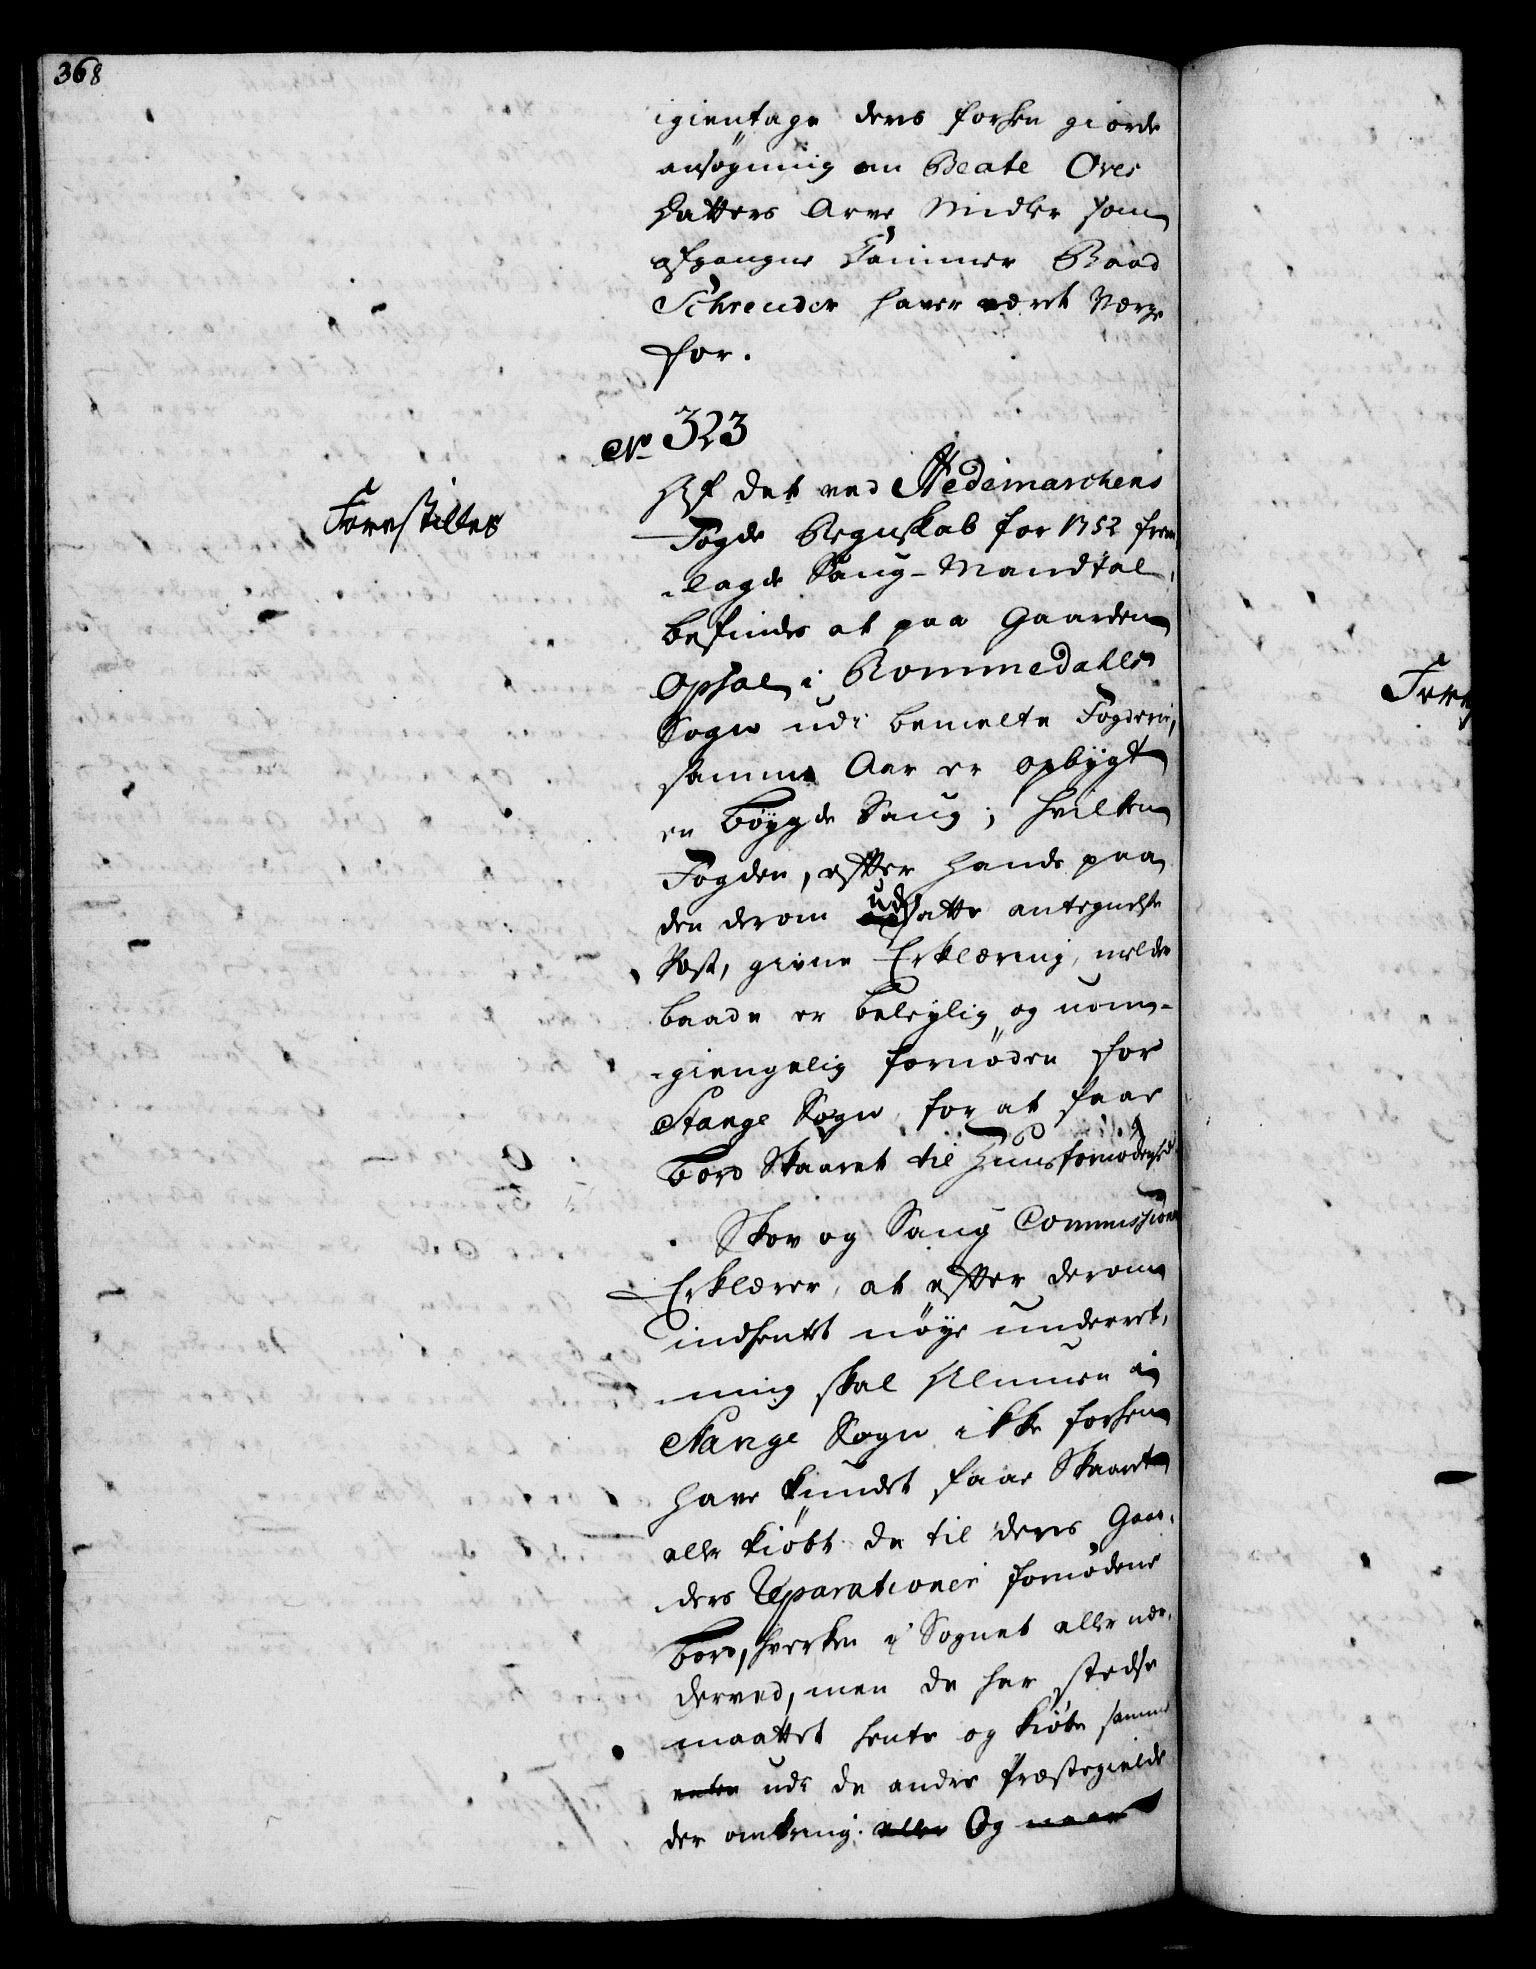 368
igientage deres forhen giorde
ansøgning om Beate Oves
Datters Arve Midler som
afgangne Cammer Raad
Schreuder haver været Værge
for.
No 323
Forestilles
Af det ved Hedemarchens
Fogde Regnskab for 1752 frem
lagde Saug-Mandtal,
befindes at paa Gaarden
Opsal i Rommedahls
Sogn udi bemelte Fogderie,
samme Aar er opbygt
en bøygde Saug; hvilken
Fogden, efter hands paa
den derom udsatte antegnelse
Post, givne Erklæring, melder
baade er beleylig og uom-
giengelig fornøden for
Stange Sogn, for at faae
bord Skaaret til Huusfornødenhed
Skov og Saug Commissionen
Erklærer, at efter derom
indhentet nøye underret,
ning skal Almuen i
Stange Sogn ikke forhen
have kundet faae Skaaret
eller kiøbt de til deres Gaar,
ders Reparationer fornødene
bord, hverken i Sognet eller nær
derved, men de har stedse
maattet hente og kiøbe samme
enten udi de andre Præstegielde
der omkring. eller Og naar